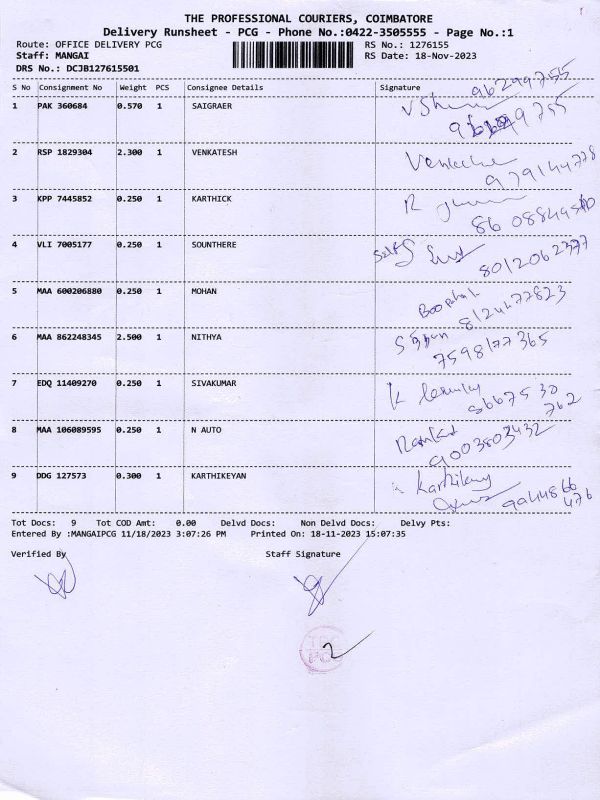 THE PROFESSIONAL COURIERS, COIMBATORE
Delivery Runsheet - PCG - Phone No.:0422-3505555 - Page No.:1
Route: OFFICE DELIVERY PCG RS No.: 1276155
Staff: MANGAI RS Date: 18-Nov-2023
DRS No.: DCJB127615501
S No Consignment No Weight PCS Consignee Details Signature
96299755
1 PAK 360684 0.570 1 SAIGRAER
2 RSP 1829304 2.300 1 VENKATESH
979144778
3 KPP 7445852 0.250 1 KARTHICK R
4 VLI 7005177 0.250 1 SOUNTHERE Self
8012062377
5 MAA 600206880 0.250 1 MOHAN
8124477823
6 MAA 862248345 2.500 1 NITHYA
7598177365
7 EDQ 11409270 0.250 1 SIVAKUMAR K
8667530
762
8 MAA 106089595 0.250 1 N AUTO
9003803432
9 DDG 127573 0.300 1 KARTHIKEYAN
9944866
476
Tot Docs: 9 Tot COD Amt: 0.00 Delvd Docs: Non Delvd Docs: Delvy Pts:
Entered By :MANGAIPCG 11/18/2023 3:07:26 PM Printed On: 18-11-2023 15:07:35
Verified By Staff Signature
2